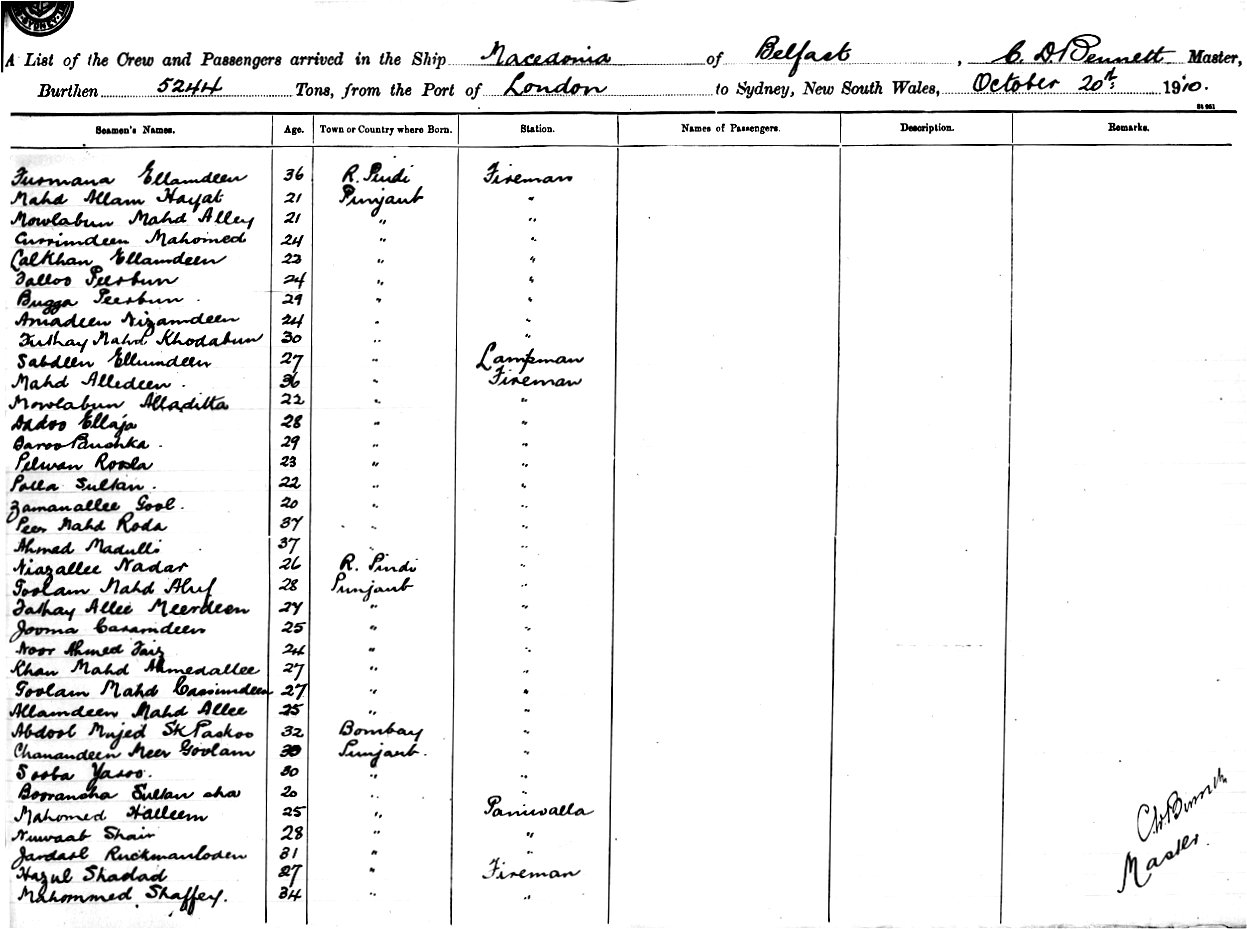 A List of the Crew and Passengers arrived in the Ship Macedonia of Belfast, C. D. Bennett Master,
Burthen 5244 Tons, from the Port of London to Sydney, New South Wales, October 20th 1910.
Seamen's Names. Age. Town or Country where Born. Station. Names of Passengers. Description. Remarks.
Furmana Ellamdeen 36 R. Pindi Fireman
Mahd Allam Hayat 21 Punjaub "
Mowlabun Mahd Alley 21 " "
Currimdeen Mahomed 24 " "
Calkhan Ellamdeen 23 " "
Falloo Peerbun 24 " "
Bugga Peerbun 29 " "
Amadeen Nizamdeen 24 " "
Futhay Mahd Khodabun 30 " "
Sabdeen Ellumdeen 27 " Lampman
Mahd Alledeen 36 " Fireman
Mowlabun Alladitta 22 " "
Dadoo Ellaja 28 " "
Baroo 29 " "
Pelwan Roosla 23 " "
Palla Sultan 22 " "
Zamanallee Gool 20 " "
Peer Mahd Roda 37 " "
Ahmed Madulli 37 " "
Niazallee Nadar 26 R. Pindi "
Goolam Mahd Aluf 28 Punjaub "
Fathay Allee Meerdeen 27 " "
Jooma Casamdeen 25 " "
Noor Ahmed Faiz 24 " "
Khan Mahd Ahmedallee 27 " "
Goolam Mahd Cassumdeen 27 " "
Allamdeen Mahd Allee 25 " "
Abdool Mujed SK Paskoo 32 Bombay "
Chanandeen Meer Goolam 30 Punjaub. "
Sooba Yasoo. 30 " "
Booransha Sultan sha 20 " "
Mahomed Halleem 25 " Paniwalla
Nuwaab Shair 28 " "
Ruckmanloden 31 " "
Hazul Shadad 27 " Fireman
Mahommed Shaffey. 34 " "
Bennett
Master.